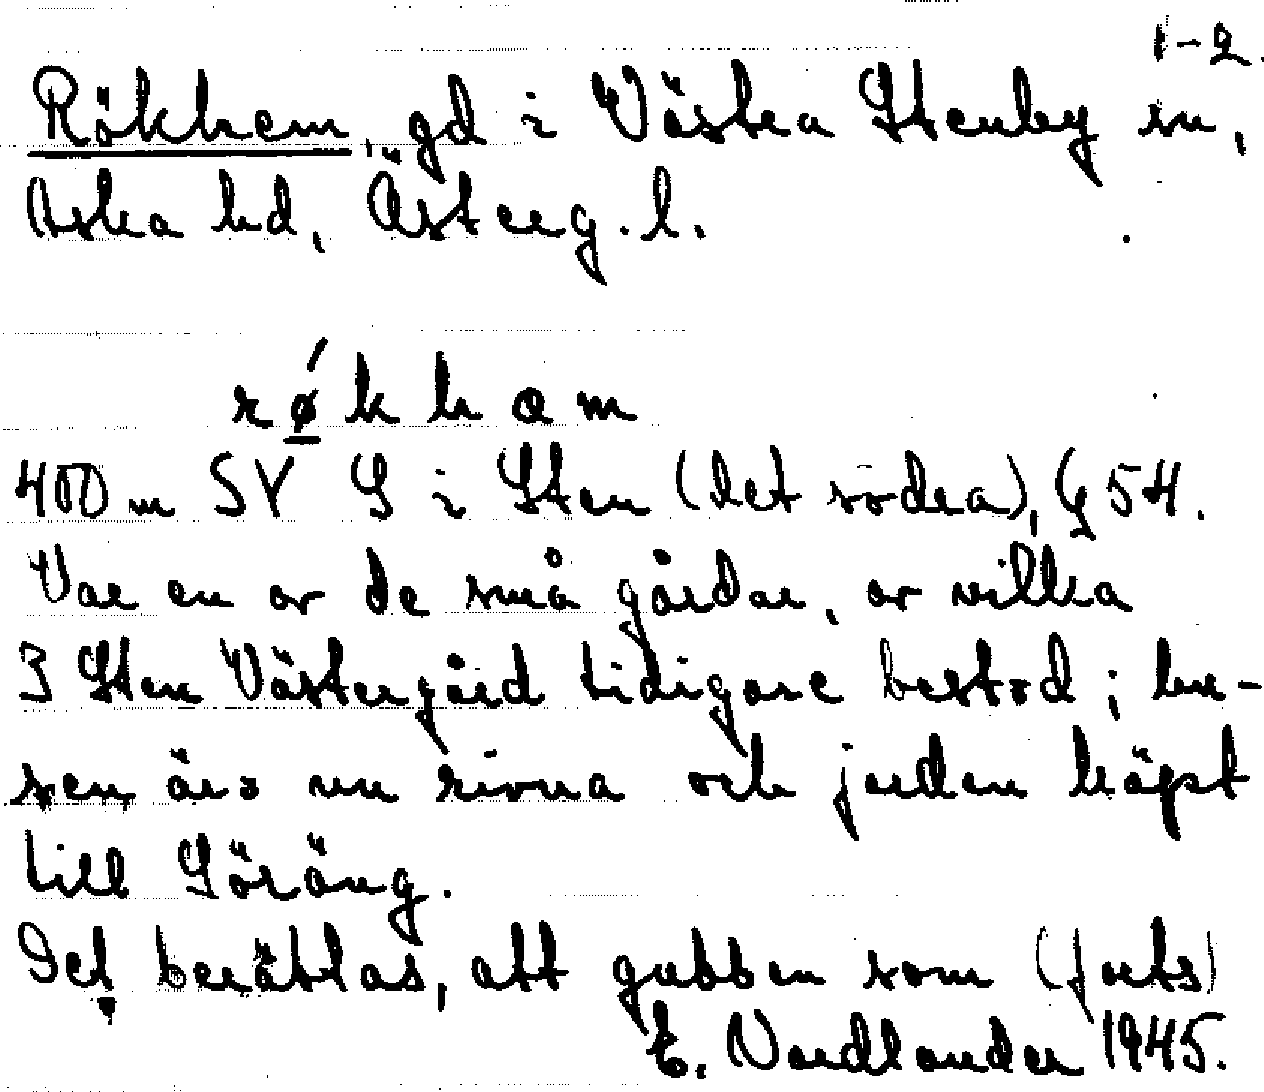 1-2.
Rökhem, gd i Västra Stenby sn,
Aska hd, Österg. l.
røkham
400 m SV S i Sten (det södra), G 54.
Var en av de små gårdar, av vilka
3 Sten Västergård tidigare bestod; hu-
sen äro nu rivna och jorden köpt
till Göräng.
Det berättas, att gubben som (forts)
E. Nordlander 1945.